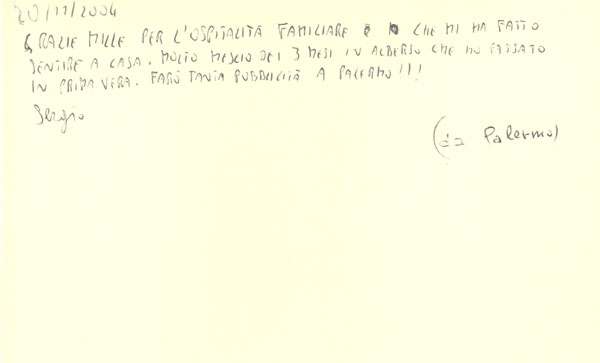 20/11/2004
GRAZIE MILLE PER L'OSPITALITÀ FAMILIARE CHE MI HA FATTO
SENTIRE A CASA. MOLTO MEGLIO DEI 3 MESI IN ALBERGO CHE HO PASSATO
IN PRIMAVERA. FARÒ TANTA PUBBLICITÀ A PALERMO!!!
Sergio
(da Palermo)